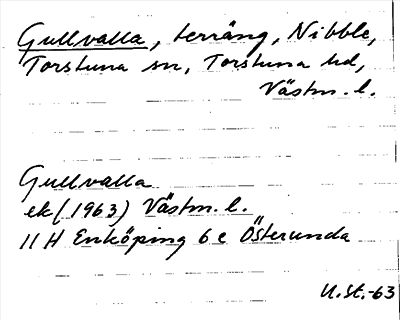 Gullvalla, terräng, Nibble,
Torstuna sn, Torstuna hd,
Västm. l.
Gullvalla
ek (1963) Västm. l.
11 H Enköping 6 e Österunda
U. St. -63